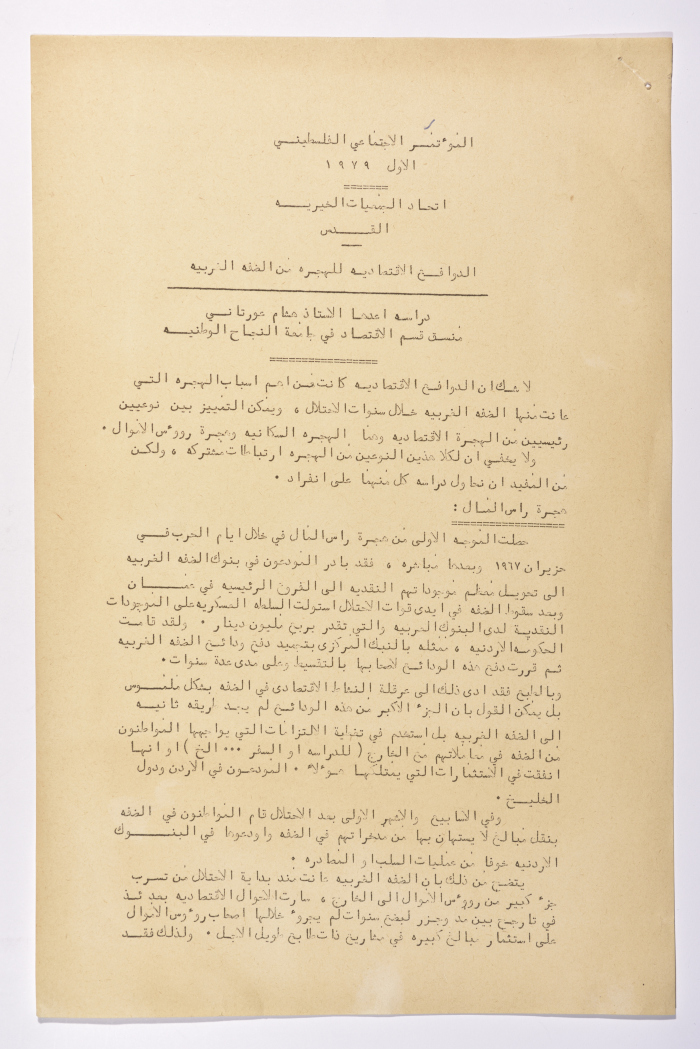 المؤتمر الاجتماعي الفلسطيني
الاول ١٩٧٩
اتحاد الجمعيات الخيريه
القدس
الدوافع الاقتصاديه للهجره من الضفه الغربيه
دراسه اعدها الاستاذ هشام عورتاني
منسق قسم الاقتصاد في جامعة النجاح الوطنيه
لا شك ان الدوافع الاقتصاديه كانت من اهم اسباب الهجره التي
عانت منها الضفه الغربيه خلال سنوات الاحتلال ، ويمكن التمييز بين نوعيين
رئيسيين من الهجرة الاقتصاديه وهما الهجره السكانيه وهجرة رووءس الاموال .
ولا يخفى ان لكلا هذين النوعين من الهجره ارتباطات مشتركه ، ولكن
من المفيد ان نحاول دراسه كل منهما على انفراد .
هجرة راس المال :
حصلت الموجه الاولى من هجرة راس المال في خلال ايام الحرب في
حزيران ١٩٦٧ وبعدها مباشره ، فقد بادر المودعون في بنوك الضفه الغربيه
الى تحويل معظم موجوداتهم النقديه الى الفروع الرئيسيه في عمان
وبعد سقوط الضفه في ايدى قوات الاحتلال استولت السلطه العسكريه على الموجودات
النقدية لدى البنوك العربيه والتي تقدر بربع مليون دينار . ولقد قامت
الحكومه الاردنيه ، ممثله بالبنك المركزى بتجميد دفع ودائع الضفه الغربيه
ثم قررت دفع هذه الودائع لاصحابها بالتقسيط وعلى مدى عدة سنوات .
وبالطبع فقد ادى ذلك الى عرقلة النشاط الاقتصادى في الضفه بشكل ملموس
بل يمكن القول بان الجزء الاكبر من هذه الودائع لم يجد طريقه ثانيه
الى الضفه الغربيه بل استخدم في تغطية الالتزامات التي يواجهها المواطنون
من الضفه في معاملاتهم مع الخارج ( للدراسه او السفر ... الخ ) او انها
انفقت في الاستثمارات التي يمتلكها هوءلاء المودعون في الاردن ودول
الخليج .
وفي الاسابيع والاشهر الاولى بعد الاحتلال قام المواطنون في الضفه
بنقل مبالغ لا يستهان بها من مدخراتهم في الضفه واودعوها في البنوك
الاردنيه خوفا من عمليات السلب او المصادره .
يتضح من ذلك بان الضفه الغربيه عانت منذ بداية الاحتلال من تسرب
جزء كبير من رووءس الاموال الى الخارج ، سارت الاحوال الاقتصاديه بعد ئذ
في تارجح بين مد وجزر لبضع سنوات لم يجروء خلالها اصحاب رووءس الاموال
على استثمار مبالغ كبيره في مشاريع ذات طابع طويل الاجل . ولذلك فقد